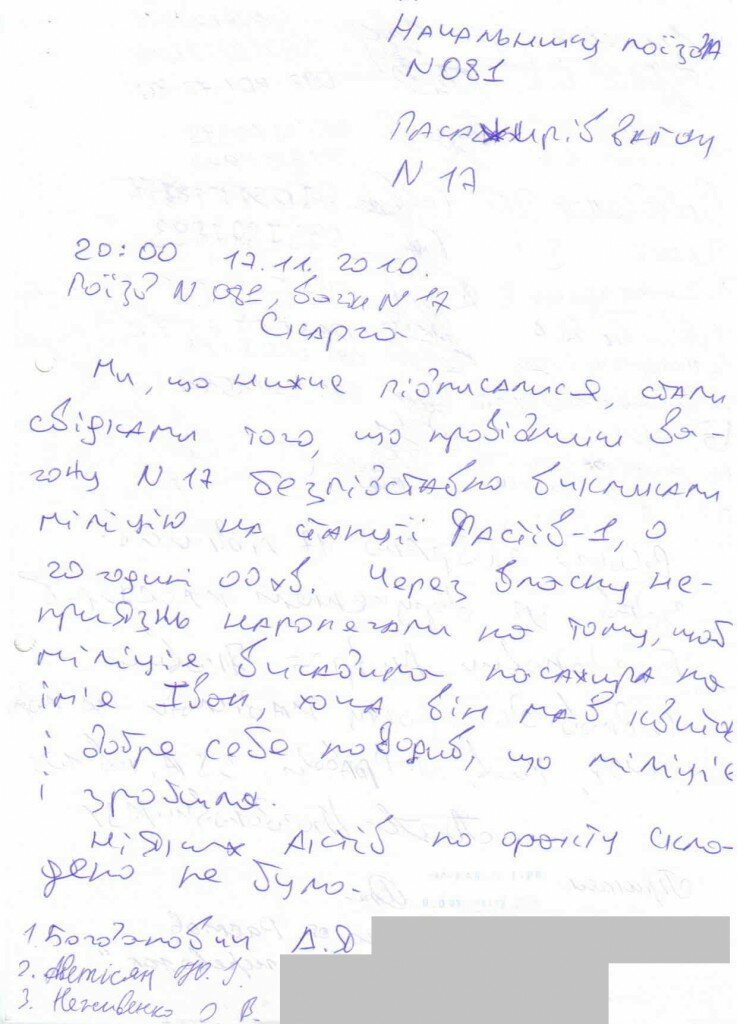 Начальнику поїзда
N 081
Пасажирів вагону
N 17
20:00 17.11.2010.
Поїзд N 081, вагон N 17
Скарга
Ми, що нижче підписалися, стали
свідками того, що провідники ва-
гону N 17 безпідставно викликали
міліцію на станції Фастів-1, о
20 годині 00 хв. Через власну не-
приязнь наполягали на тому, щоб
міліція висадила пасажира на
імя Іван, хоча він мав квиток
і добре себе поводив, що міліція
і зробила.
Ніяких Актів по факту скла-
дено не було.
1. Богданович А.Я
2. Аветісян Ю.
3. Неживенко О В.